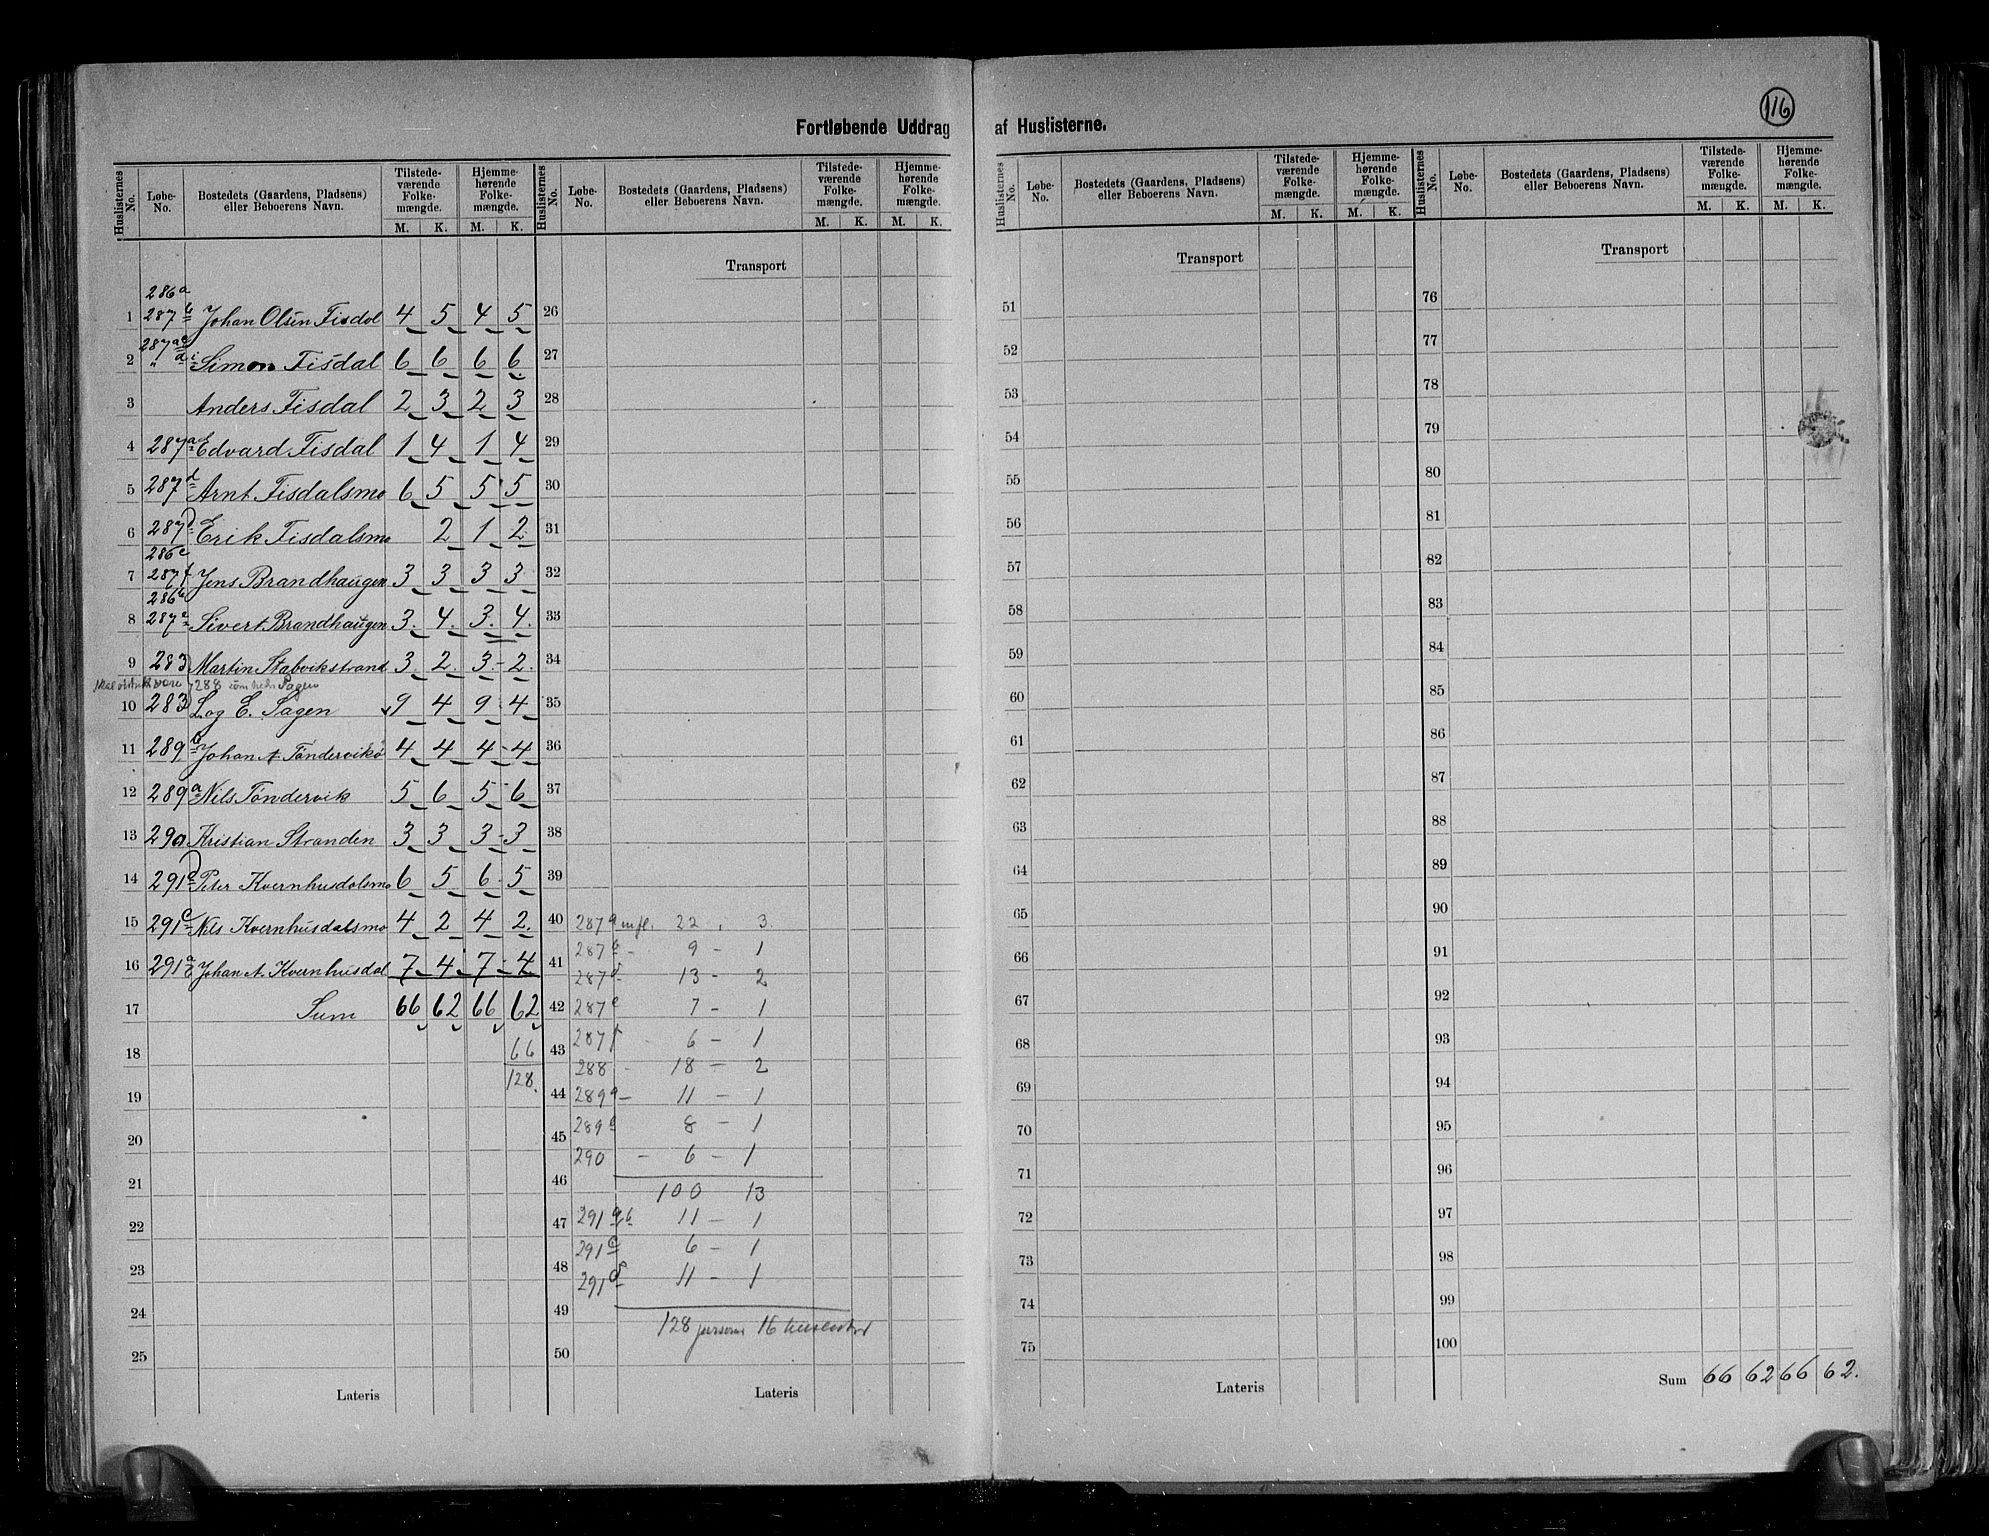 116
Fortløbende Uddrag af Huslisterne.
Huslisternes No. | Løbe-No. | Bostedets (Gaardens, Pladsens) eller Beboerens Navn. | Tilstede-værende Folke-mængde. M. K. | Hjemme-hørende Folke-mængde. M. K.
Huslisternes No. | Løbe-No. | Bostedets (Gaardens, Pladsens) eller Beboerens Navn. | Tilstede-værende Folke-mængde. M. K. | Hjemme-hørende Folke-mængde. M. K.
Huslisternes No. | Løbe-No. | Bostedets (Gaardens, Pladsens) eller Beboerens Navn. | Tilstede-værende Folke-mængde. M. K. | Hjemme-hørende Folke-mængde. M. K.
Huslisternes No. | Løbe-No. | Bostedets (Gaardens, Pladsens) eller Beboerens Navn. | Tilstede-værende Folke-mængde. M. K. | Hjemme-hørende Folke-mængde. M. K.
286a
1 287b Johan Olsen Fisdal 4 5 4 5
287ac
2 " d Simon Fisdal 6 6 6 6
3 Anders Fisdal 2 3 2 3
4 287a Edvard Fisdal 1 4 1 4
5 287d Arnt Fisdalsmo 6 5 5 5
6 287d Erik Fisdalsmo 2 1 2
286c
7 287f Jens Brandhaugen 3 3 3 3
286b
8 287e Sivert Brandhaugen 3. 4. 3. 4.
9 283 Martin Stabvikstrand 3 2. 3.- 2.
vore 288 Sagen
10 283 E. Sagen 9 4 9 4
11 289b Johan A. Tøndervikø 4 4 4 - 4
12 289a Nils Tøndervik 5 6 5 6
13 290 Kristian Stranden 3 3 3 - 3
14 291d Peter Kvernhusdalsmo 6 5 6 - 5
15 291c Nils Kvernhusdalsmo 4 2 4 2.
16 291a Johan A. Kvernhusdal 7 4 7 - 4
17 Sum 66 62 66 62
18 66
128.
19
20
21
22
23
24
25
Lateris
Transport
26
27
28
29
30
31
32
33
34
35
36
37
38
39
40 287a mfl. 22 3
287b - 9 - 1
41 287d - 13 - 2
42 287e 7 - 1
43 287f - 6 - 1
288 - 18 - 2
44 289a - 11 - 1
45 289b 8 - 1
290 - 6 - 1
46 100 13
47 291a,b 11 - 1
291c 6 - 1
48 291d 11 - 1
49 128 personer 16 huslister
50
Lateris
Transport
51
52
53
54
55
56
57
58
59
60
61
62
63
64
65
66
67
68
69
70
71
72
73
74
75
Lateris
Transport
76
77
78
79
80
81
82
83
84
85
86
87
88
89
90
91
92
93
94
95
96
97
98
99
100
Sum 66 62 66 62.